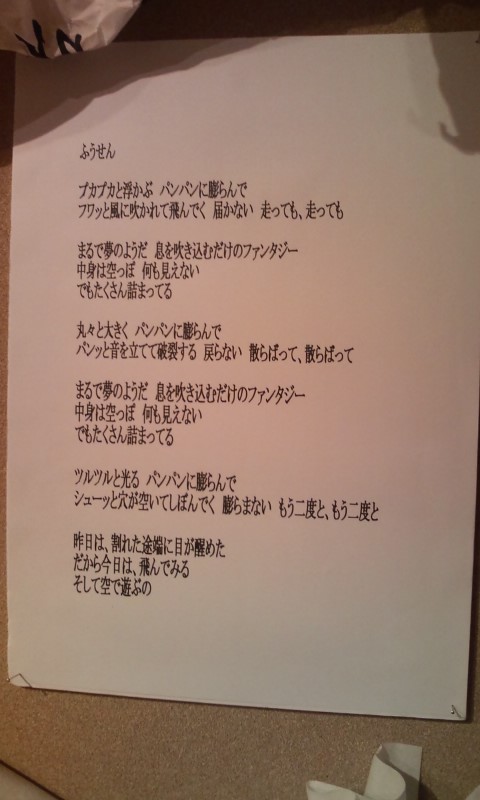 ふうせん
プカプカと浮かぶ パンパンに膨らんで
フワッと風に吹かれて飛んでく 届かない 走っても、走っても
まるで夢のようだ 息を吹き込むだけのファンタジー
中身は空っぽ 何も見えない
でもたくさん詰まってる
丸々と大きく パンパンに膨らんで
パンッと音を立てて破裂する 戻らない 散らばって、散らばって
まるで夢のようだ 息を吹き込むだけのファンタジー
中身は空っぽ 何も見えない
でもたくさん詰まってる
ツルツルと光る パンパンに膨らんで
シューッと穴が空いてしぼんでく 膨らまない もう二度と、もう二度と
昨日は、割れた途端に目が醒めた
だから今日は、飛んでみる
そして空で遊ぶの